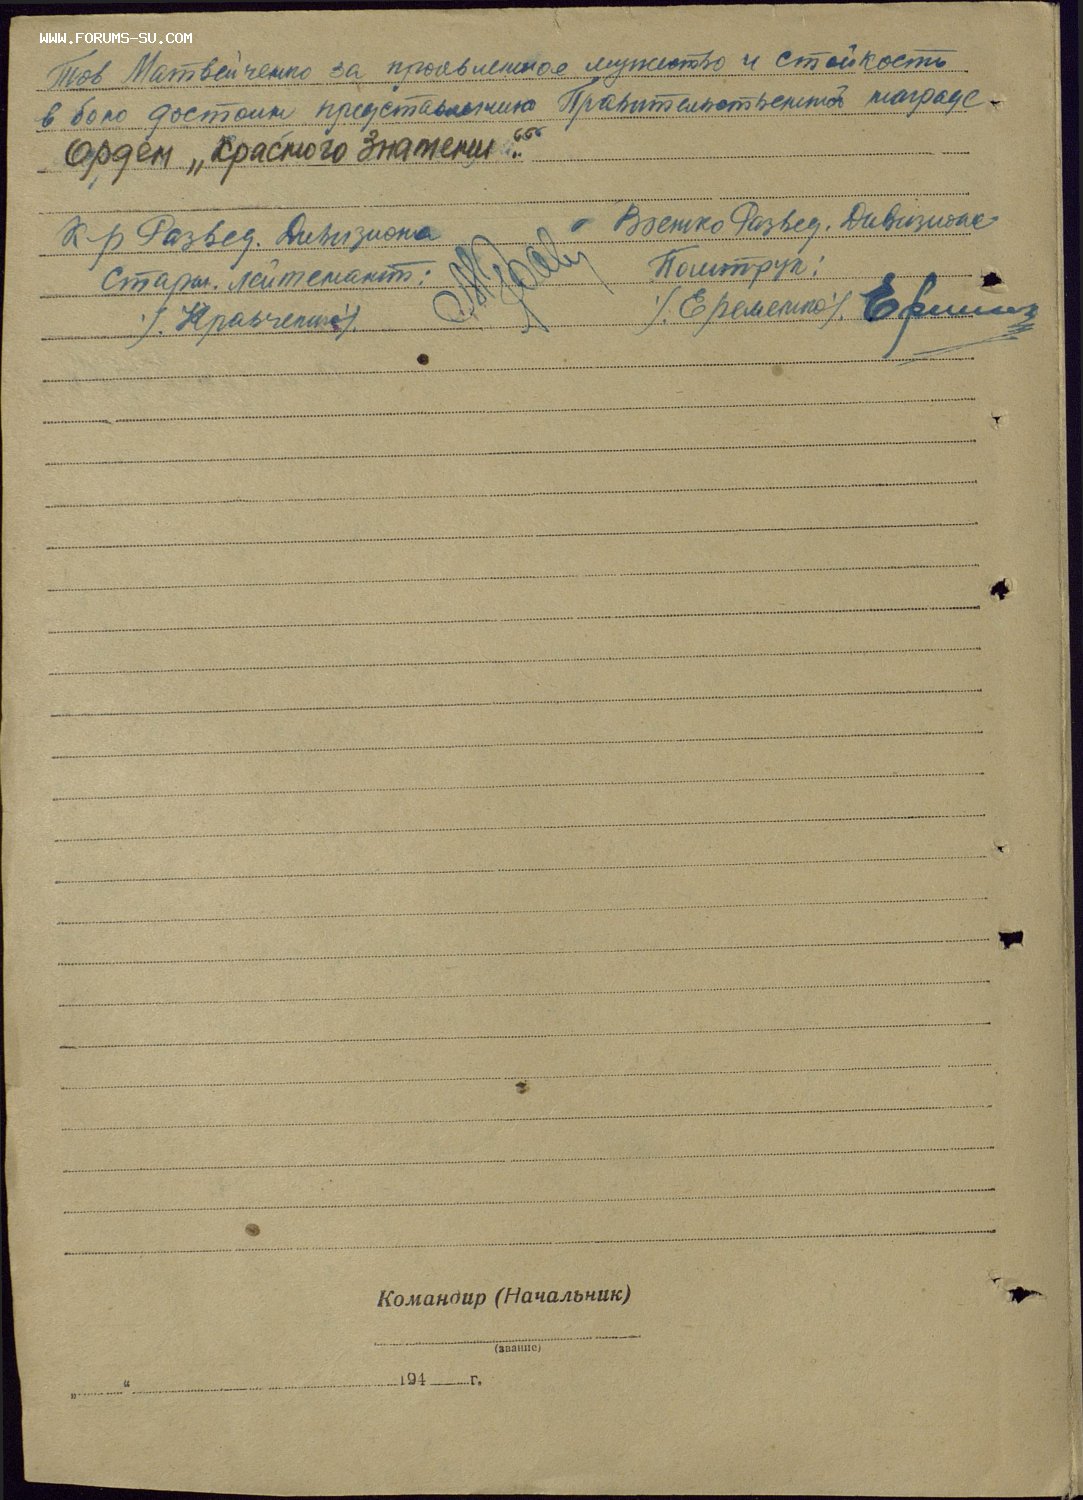 WWW.FORUMS-SU.COM
Тов Матвейченко за проявленное мужество и стойкость
в бою достоин представлению Правительственной награде.
Орден „Красного Знамени“.
К-р Развед. Дивизиона
Старш. лейтенант:
/. Кравченко/.
Военко Развед. Дивизиона
Политрук:
/. Еременко/.
Командир (Начальник)
(звание)
„ “ 194 г.